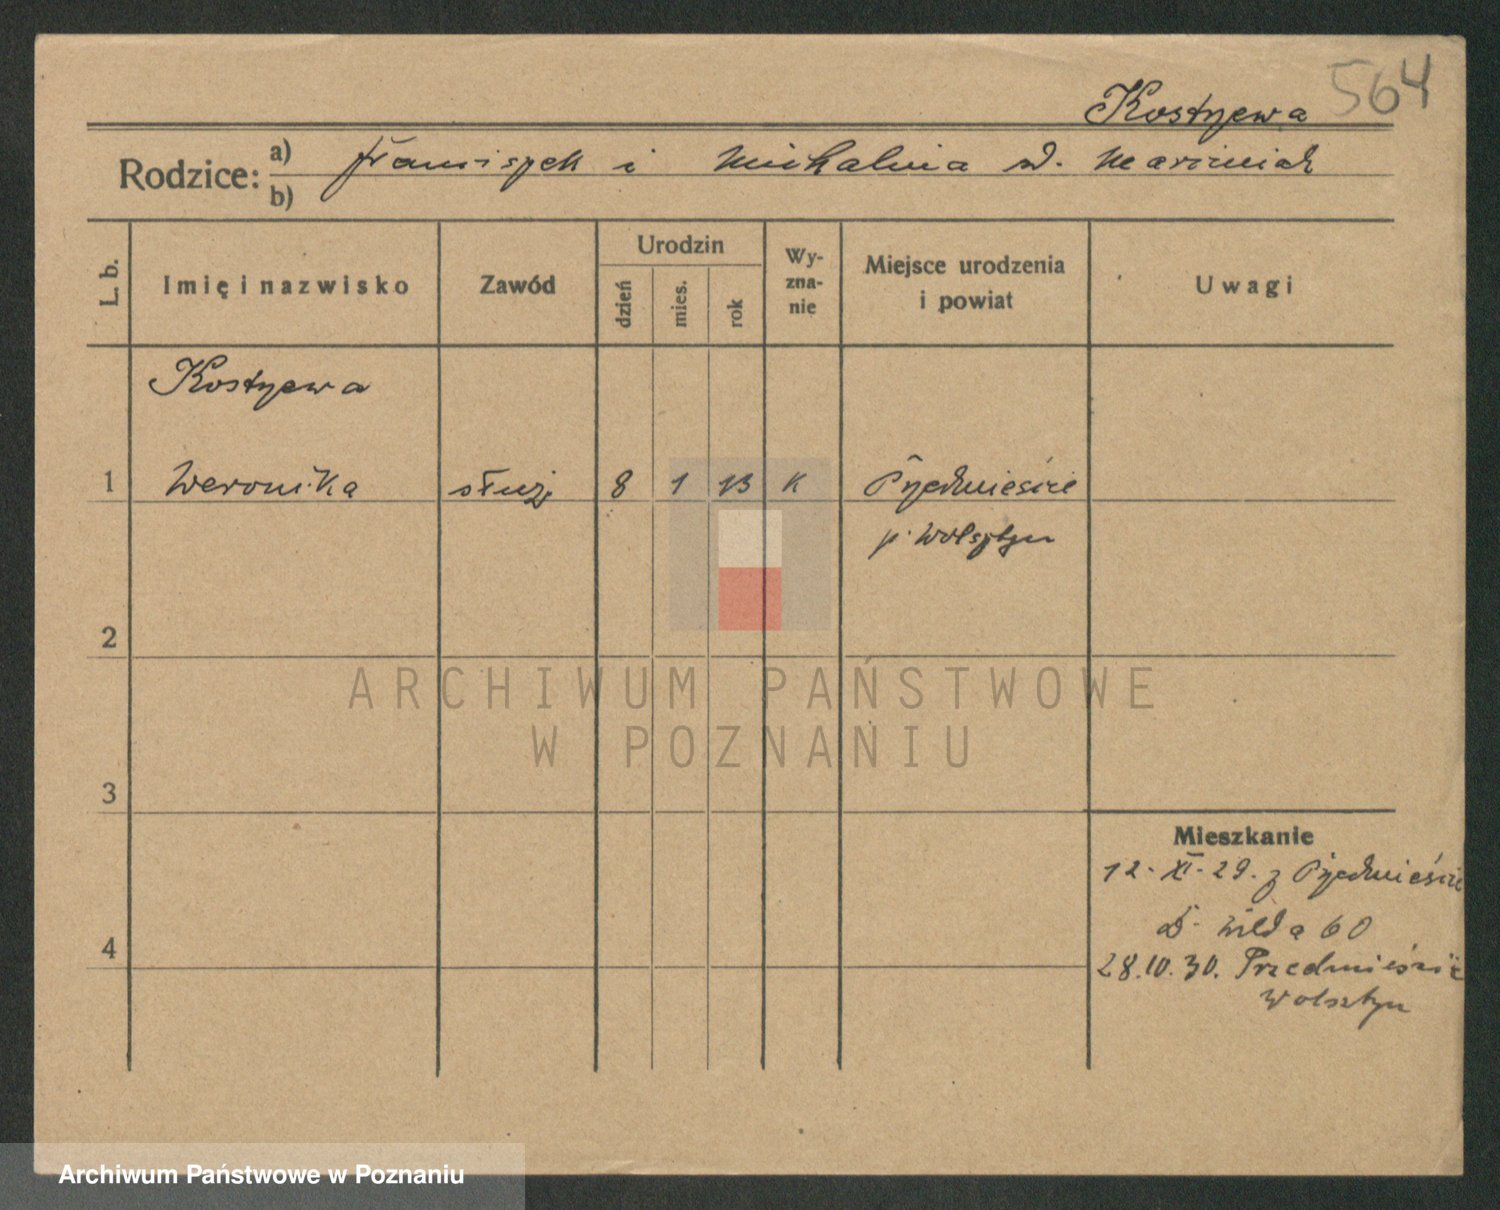 564
Kostrzewa
Rodzice: a) Franciszek i Michalina d. Marciniak
b)
L. b.
Imię i nazwisko
Zawód
Urodzin
dzień
mies.
rok
Wy-
zna-
nie
Miejsce urodzenia
i powiat
Uwagi
Kostrzewa
1 Weronika służ 8 1 13 K Przedmieście
p. Wolsztyn
2
3
4
Mieszkanie
12-XI-29. z Przedmieście
D. Wilda 60
28.10.30. Przedmieście
Wolsztyn
ARCHIWUM PAŃSTWOWE
W POZNANIU
Archiwum Państwowe w Poznaniu